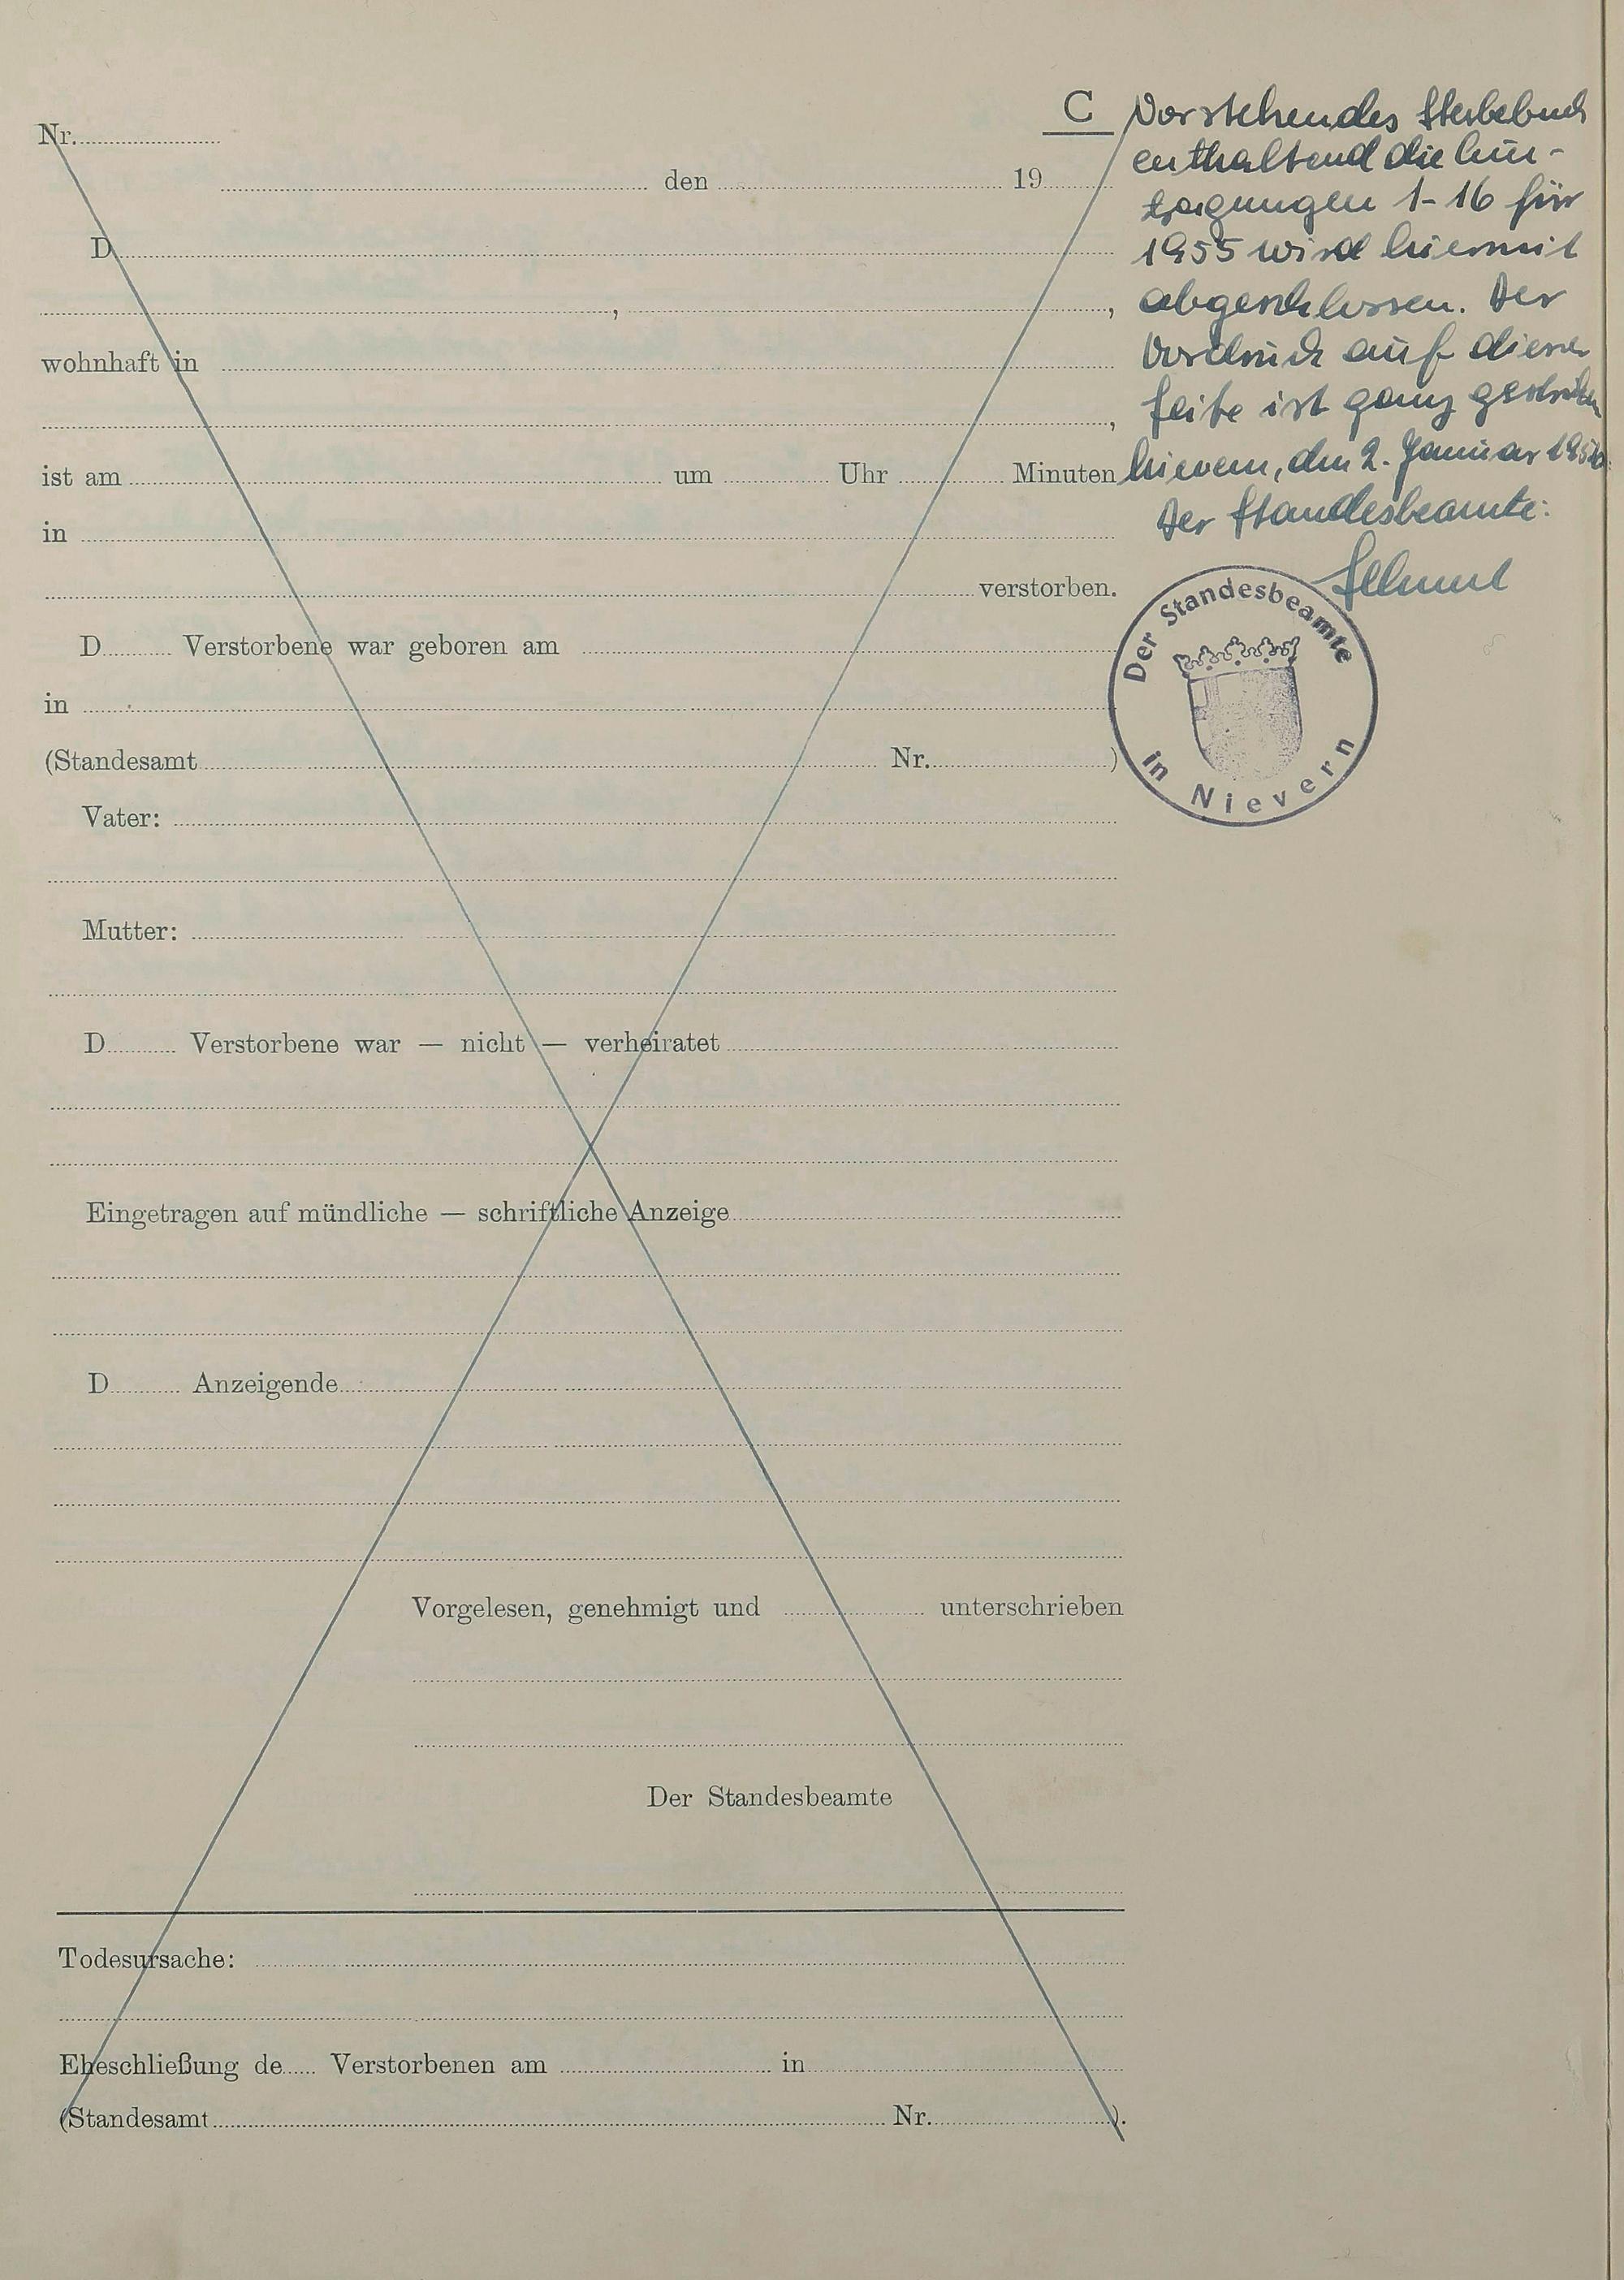 C
Nr.
den 19
D
, ,
wohnhaft in
,
ist am um Uhr Minuten
in
verstorben.
D Verstorbene war geboren am
in
(Standesamt Nr. )
Vater:
Mutter:
D Verstorbene war — nicht — verheiratet
Eingetragen auf mündliche — schriftliche Anzeige
D Anzeigende
Vorgelesen, genehmigt und unterschrieben
Der Standesbeamte
Todesursache:
Eheschließung de Verstorbenen am in
(Standesamt Nr. ).
Vorstehendes Sterbebuch
enthaltend die Ein-
tragungen 1-16 für
1955 wird hiermit
abgeschlossen. Der
Vordruck auf dieser
Seite ist ganz gestrichen
Nievern, den 2. Januar
Der Standesbeamte:
Der Standesbeamte
in Nievern